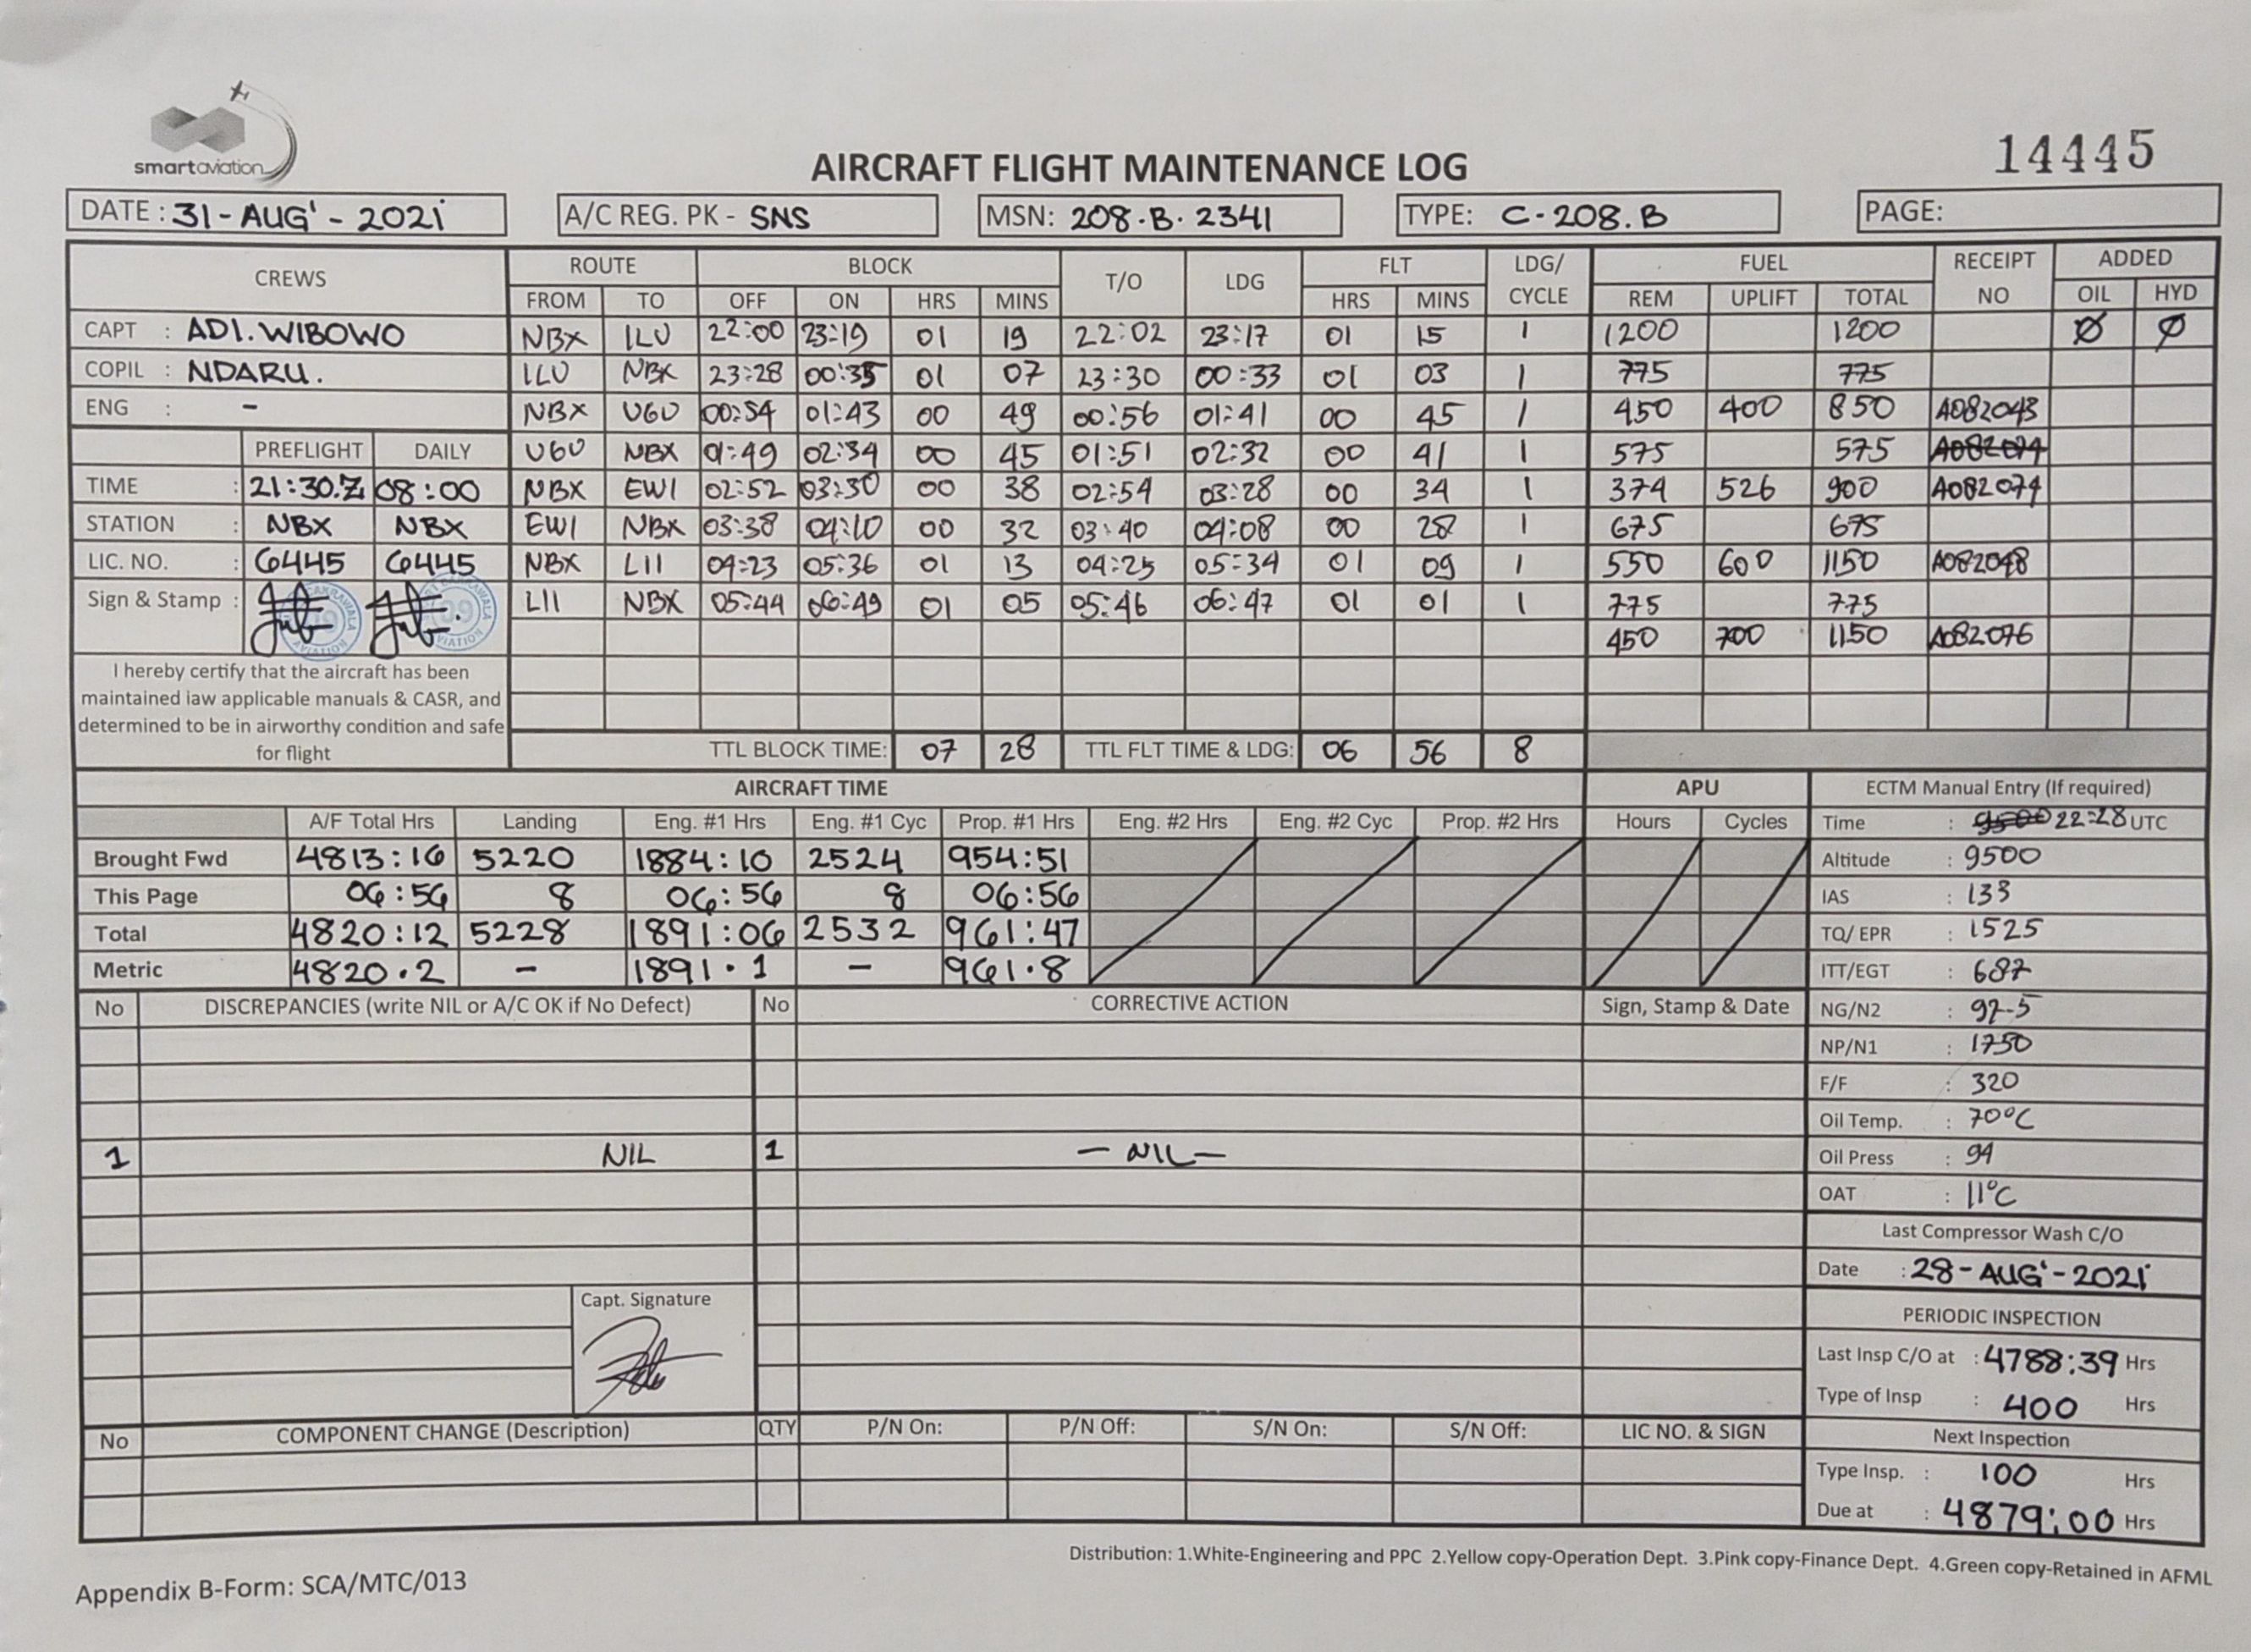 smartaviation
14445
AIRCRAFT FLIGHT MAINTENANCE LOG
DATE : 31-AUG'-2021 A/C REG. PK - SNS MSN: 208.B.2341 TYPE: C-208.B PAGE:
CREWS ROUTE BLOCK T/O LDG FLT LDG/ CYCLE FUEL RECEIPT NO ADDED
FROM TO OFF ON HRS MINS HRS MINS REM UPLIFT TOTAL OIL HYD
CAPT : ADI.WIBOWO NBX ILU 22:00 23:19 01 19 22:02 23:17 01 15 1 1200 1200 Ø Ø
COPIL : NDARU. ILU NBX 23:28 00:35 01 07 23:30 00:33 01 03 1 775 775
ENG : - NBX UGU 00:54 01:43 00 49 00:56 01:41 00 45 1 450 400 850 A082043
PREFLIGHT DAILY UGU NBX 01:49 02:34 00 45 01:51 02:32 00 41 1 575 575 A082074
TIME : 21:30.Z 08:00 NBX EWI 02:52 03:30 00 38 02:54 03:28 00 34 1 374 526 900 A082074
STATION : NBX NBX EWI NBX 03:38 04:10 00 32 03:40 04:08 00 28 1 675 675
LIC. NO. : 6445 6445 NBX LII 04:23 05:36 01 13 04:25 05:34 01 09 1 550 600 1150 A082048
Sign & Stamp : LII NBX 05:44 06:49 01 05 05:46 06:47 01 01 1 775 775
450 700 1150 A082076
I hereby certify that the aircraft has been
maintained law applicable manuals & CASR, and
determined to be in airworthy condition and safe
for flight
TTL BLOCK TIME: 07 28 TTL FLT TIME & LDG: 06 56 8
AIRCRAFT TIME APU ECTM Manual Entry (If required)
A/F Total Hrs Landing Eng. #1 Hrs Eng. #1 Cyc Prop. #1 Hrs Eng. #2 Hrs Eng. #2 Cyc Prop. #2 Hrs Hours Cycles Time : 9500 22:28 UTC
Brought Fwd 4813:16 5220 1884:10 2524 954:51 Altitude : 9500
This Page 06:56 8 06:56 8 06:56 IAS : 133
Total 4820:12 5228 1891:06 2532 961:47 TQ/ EPR : 1525
Metric 4820.2 - 1891.1 - 961.8 ITT/EGT : 687
No DISCREPANCIES (write NIL or A/C OK if No Defect) No CORRECTIVE ACTION Sign, Stamp & Date NG/N2 : 97.5
NP/N1 : 1750
F/F : 320
Oil Temp. : 70°C
1 NIL 1 - NIL - Oil Press : 94
OAT : 11°C
Last Compressor Wash C/O
Date : 28-AUG'-2021
Capt. Signature
PERIODIC INSPECTION
Last Insp C/O at : 4788:39 Hrs
Type of Insp : 400 Hrs
No COMPONENT CHANGE (Description) QTY P/N On: P/N Off: S/N On: S/N Off: LIC NO. & SIGN Next Inspection
Type Insp. : 100 Hrs
Due at : 4879:00 Hrs
Distribution: 1.White-Engineering and PPC 2.Yellow copy-Operation Dept. 3.Pink copy-Finance Dept. 4.Green copy-Retained in AFML
Appendix B-Form: SCA/MTC/013